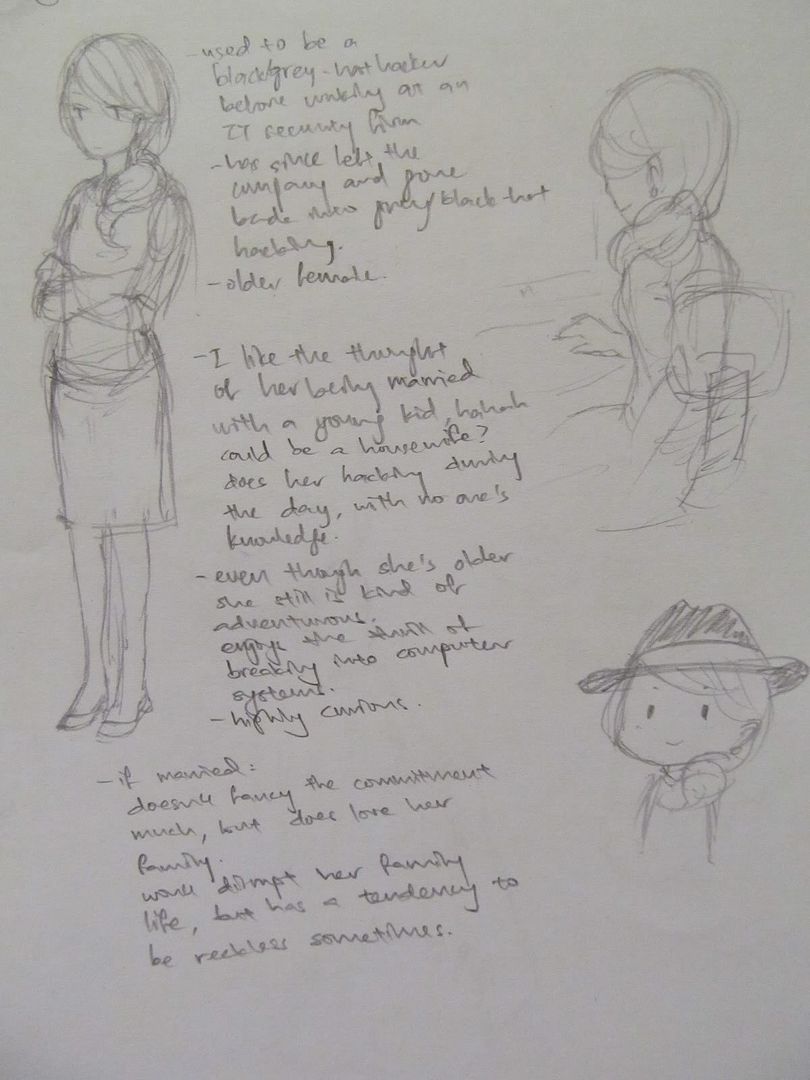 - used to be a
black/grey-hat hacker
before working at an
IT security firm
- has since left the
company and gone
back into grey/black-hat
hacking.
- older female.
- I like the thought
of her being married
with a young kid, hahah
could be a housewife?
does her hacking during
the day, with no one's
knowledge.
- even though she's older
she still is kind of
adventurous.
enjoys the thrill of
breaking into computer
systems.
- highly curious.
- if married:
doesn't fancy the commitment
much, but does love her
family.
won't disrupt her family
life, but has a tendency to
be reckless sometimes.